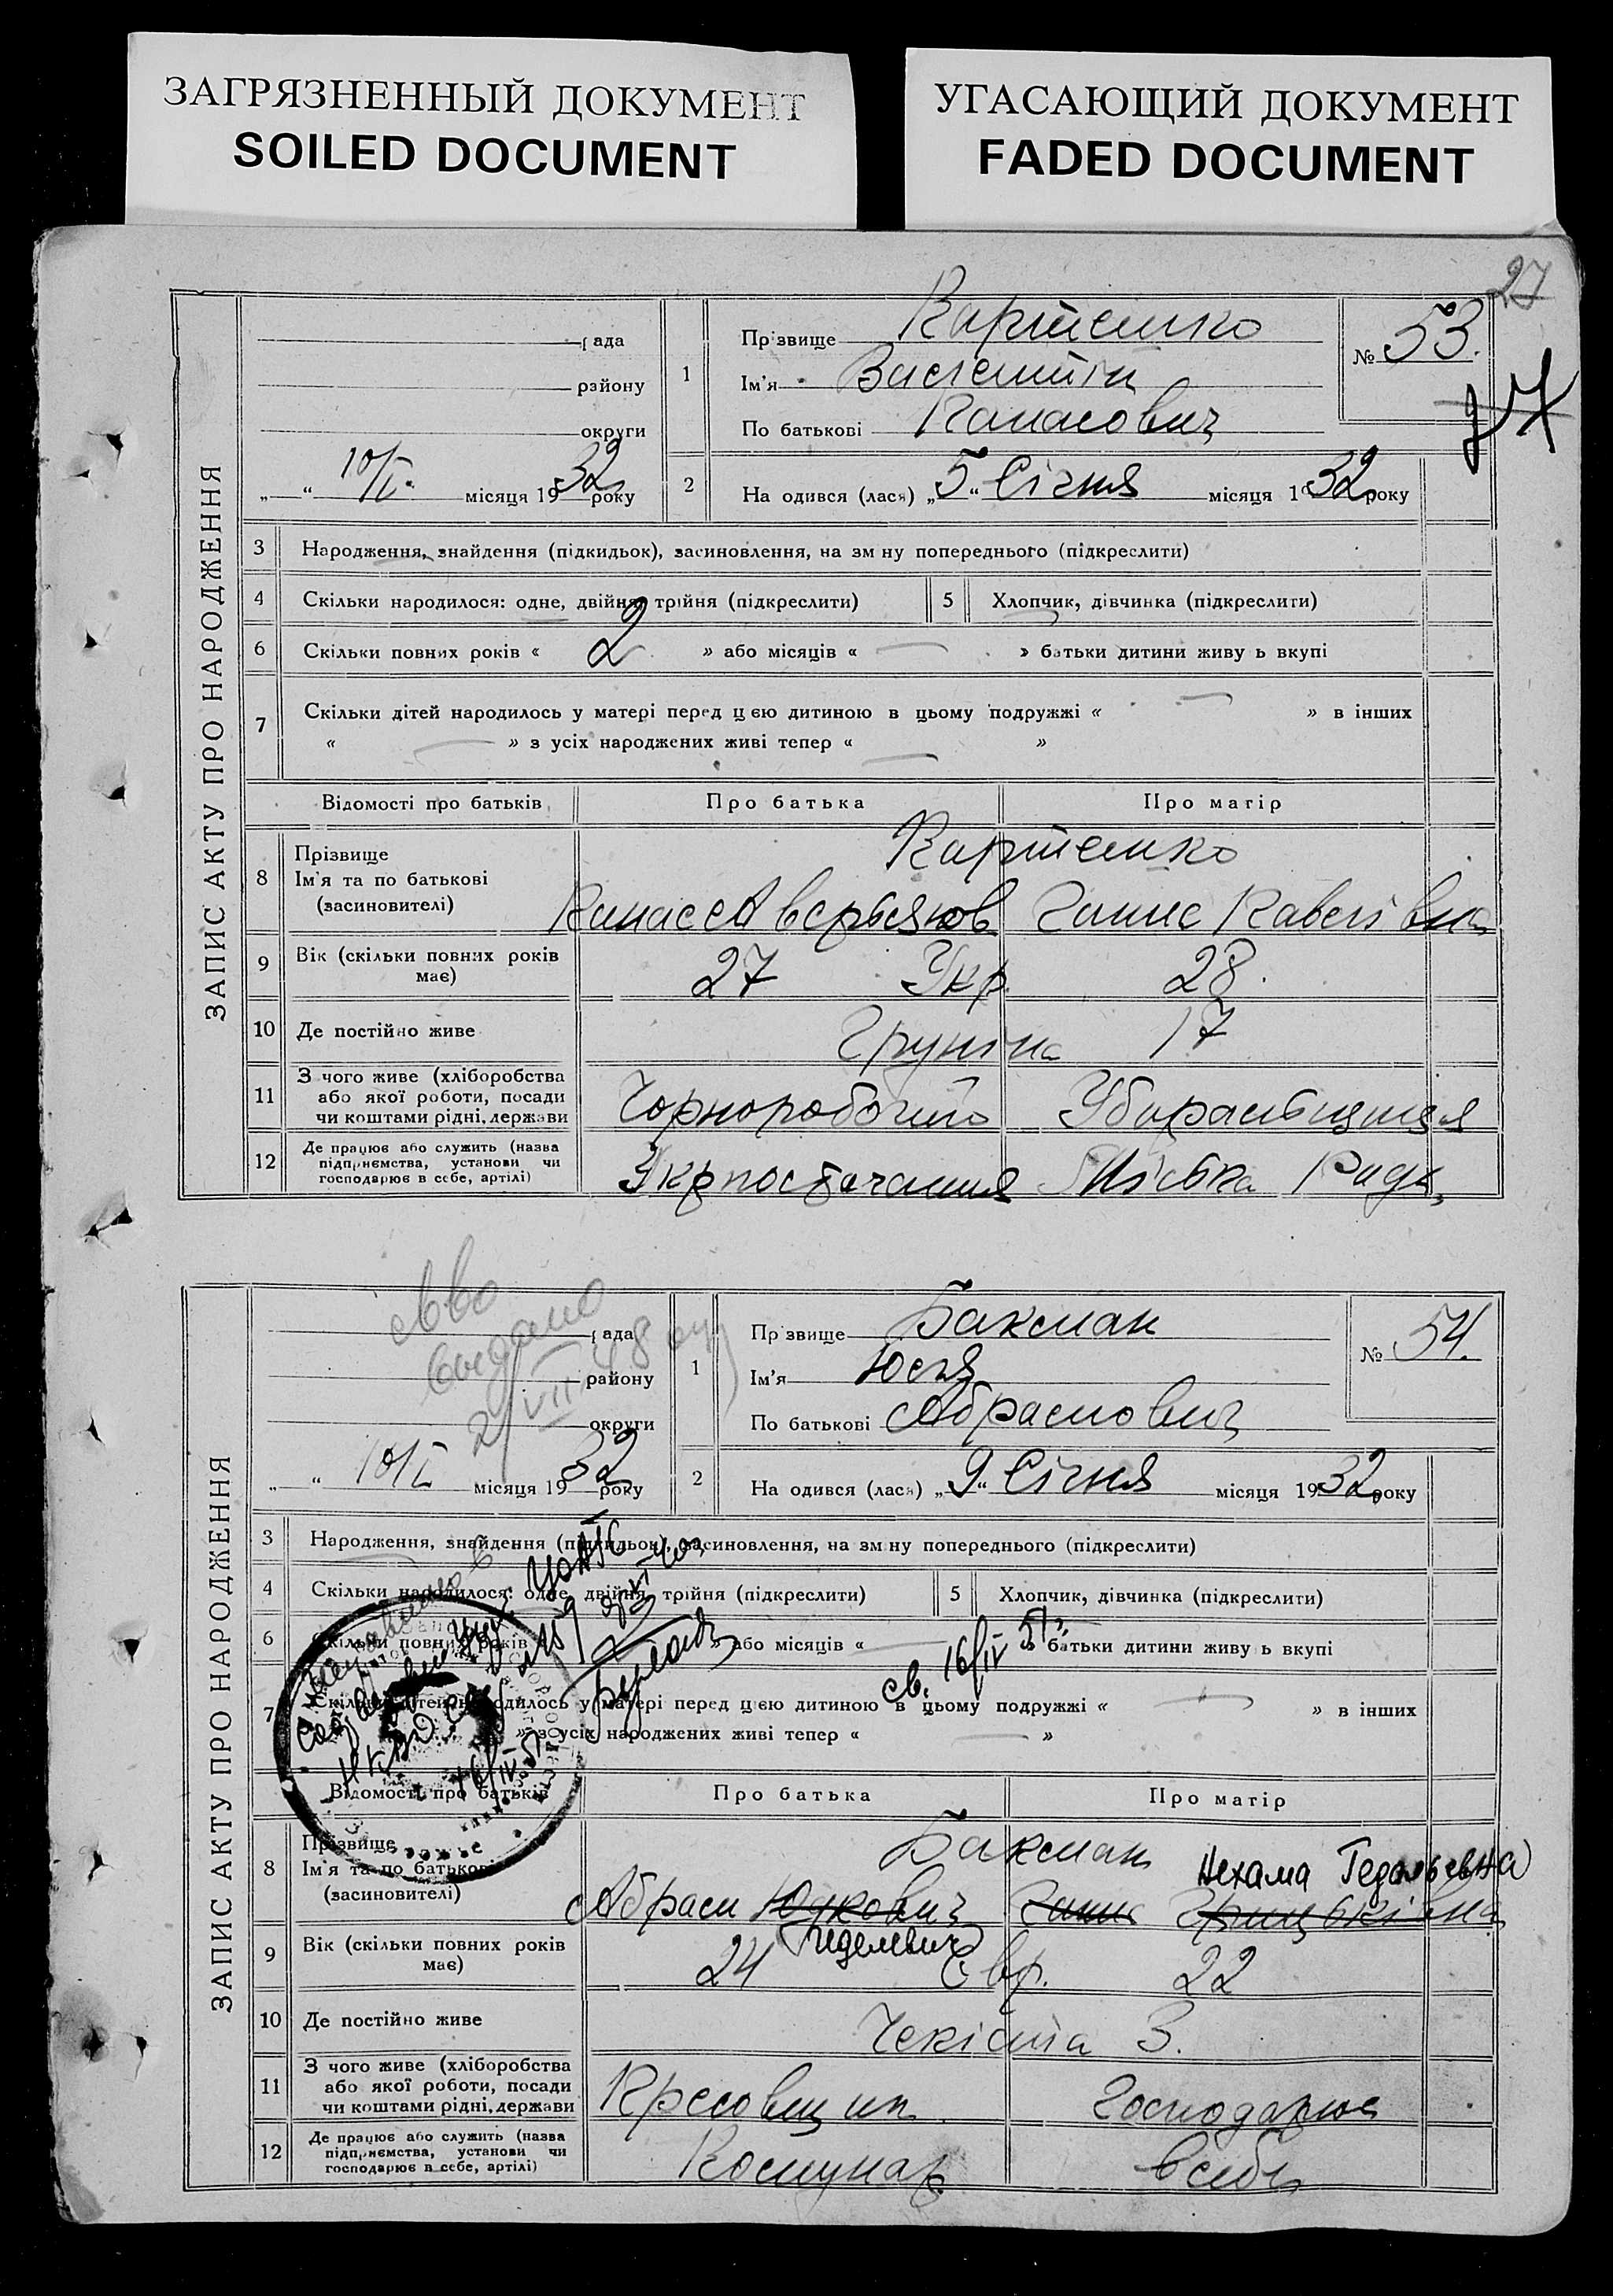 ЗАГРЯЗНЕННЫЙ ДОКУМЕНТ
SOILED DOCUMENT
УГАСАЮЩИЙ ДОКУМЕНТ
FADED DOCUMENT
27
ЗАПИС АКТУ ПРО НАРОДЖЕННЯ
рада
району
округи
„ “ 10/I. місяця 1932 року
1
Прізвище Картенко
Ім'я Валентін
По батькові Панасович
№ 53.
2 На одився (лася) „5“ Січня місяця 1932 року
3 Народження, знайдення (підкидьок), засиновлення, на зм ну попереднього (підкреслити)
4 Скільки народилося: одне, двійня, трійня (підкреслити) 5 Хлопчик, дівчинка (підкреслити)
6 Скільки повних років « 2 » або місяців « — » батьки дитини живу ь вкупі
7 Скільки дітей народилось у матері перед цією дитиною в цьому подружжі « — » в інших
« — » з усіх народжених живі тепер « — »
Відомості про батьків Про батька Про матір
8 Прізвище
Ім'я та по батькові
(засиновителі)
Картенко
Панас Авер'янов Ганна
9 Вік (скільки повних років має) 27 Укр. 28.
10 Де постійно живе 17
11 З чого живе (хліборобства
або якої роботи, посади
чи коштами рідні, держави
Чорноробочий
12 Де працює або служить (назва
підприємства, установи чи
господарює в себе, артілі)
Укрпостачання Міська Рада
ЗАПИС АКТУ ПРО НАРОДЖЕННЯ
рада
району
округи
„ “ 10/I місяця 1932 року
1
Прізвище Бакман
Ім'я Юсля
По батькові Абрамович
№ 54.
2 На одився (лася) „9“ Січня місяця 1932 року
3 Народження, знайдення (підкидьок), засиновлення, на зм ну попереднього (підкреслити)
4 Скільки народилося: одне, двійня, трійня (підкреслити) 5 Хлопчик, дівчинка (підкреслити)
6 Скільки повних років або місяців « батьки дитини живу ь вкупі
св. 16/IV 51г.
7 Скільки дітей народилось у матері перед цією дитиною в цьому подружжі « » в інших
» з усіх народжених живі тепер « — »
16/IV 51
Відомості про батьків Про батька Про матір
8 Прізвище
Ім'я та по батькові
(засиновителі)
Бакман
Нехама Гедальевна
Абрам Юдкович Ганна
Гиделевич
9 Вік (скільки повних років має) 24 Євр. 22
10 Де постійно живе Чекіста 3.
11 З чого живе (хліборобства
або якої роботи, посади
чи коштами рідні, держави
Господарює
12 Де працює або служить (назва
підприємства, установи чи
господарює в себе, артілі)
Комунар в себе